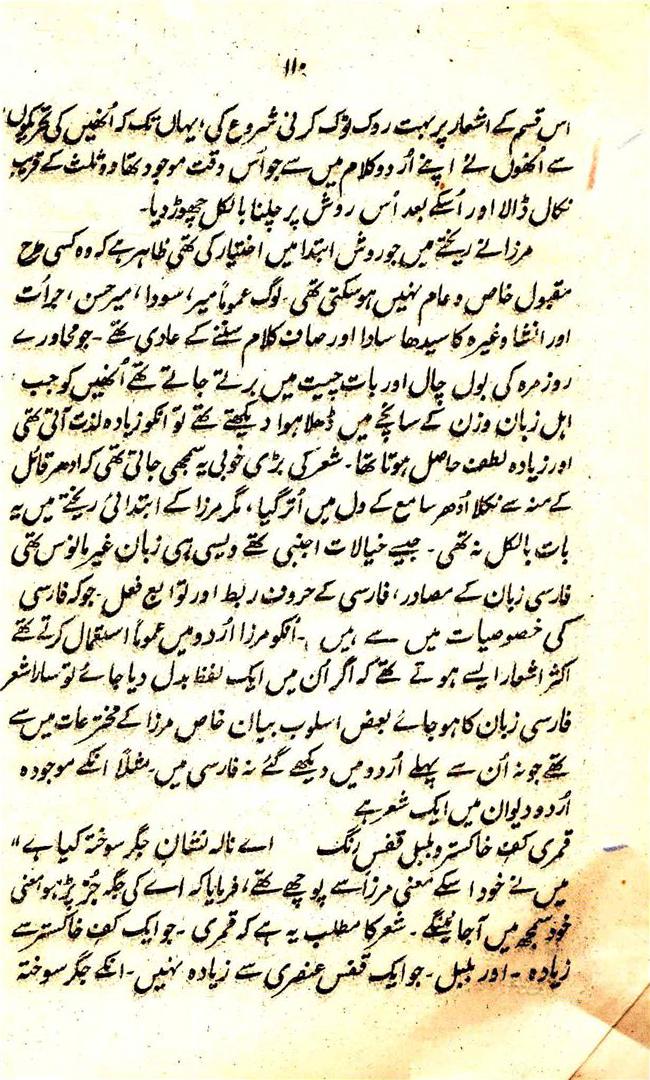 ۱۱۰
اس قسم کے اشعار پر بہت روک ٹوک کرنی شروع کی، یہاں تک کہ اُنھیں کی تحریکوں
سے اُنھوں نے اپنے اُردو کلام میں سے جو اُس وقت موجود تھا دو ثلث کے قریب
نکال ڈالا اور اُسکے بعد اُس روش پر چلنا بالکل چھوڑ دیا۔
مرزا نے ریختے میں جو روش ابتدا میں اختیار کی تھی ظاہر ہے کہ وہ کسی طرح
مقبول خاص و عام نہیں ہو سکتی تھی۔ لوگ عموماً میر، سودا، میر حسن، جرأت
اور انشا وغیرہ کا سیدھا سادا اور صاف کلام سننے کے عادی تھے۔ جو محاورے
روزمرہ کی بول چال اور بات چیت میں برتے جاتے تھے اُنھیں کو جب
اہل زبان وزن کے سانچے میں ڈھلا ہوا دیکھتے تھے تو انکو زیادہ لذت آتی تھی
اور زیادہ لطف حاصل ہوتا تھا۔ شعر کی بڑی خوبی یہ سمجھی جاتی تھی کہ ادھر قائل
کے منہ سے نکلا اُدھر سامع کے دل میں اُتر گیا، مگر مرزا کے ابتدائی ریختے میں یہ
بات بالکل نہ تھی۔ جیسے خیالات اجنبی تھے ویسی ہی زبان غیر مانوس تھی
فارسی زبان کے مصادر، فارسی کے حروف ربط اور توابع فعل۔ جو کہ فارسی
کی خصوصیات میں سے ہیں۔ اُنکو مرزا اُردو میں عموماً استعمال کرتے تھے
اکثر اشعار ایسے ہوتے تھے کہ اگر اُن میں ایک لفظ بدل دیا جائے تو سارا شعر
فارسی زبان کا ہو جائے بعض اسلوب بیان خاص مرزا کے مخترعات میں سے
تھے جو نہ اُن سے پہلے اُردو میں دیکھے گئے نہ فارسی میں۔ مثلاً انکے موجودہ
اُردو دیوان میں ایک شعر ہے
قمری کف خاکستر و بلبل قفس رنگ اے نالہ نشانِ جگر سوختہ کیا ہے"
میں نے خود اسکے معنی مرزا سے پوچھے تھے، فرمایا کہ اے کی جگہ جُز پڑھو معنی
خود سمجھ میں آجائینگے۔ شعر کا مطلب یہ ہے کہ قمری۔ جو ایک کف خاکستر سے
زیادہ۔ اور بلبل۔ جو ایک قفس عنصری سے زیادہ نہیں۔ انکے جگر سوختہ